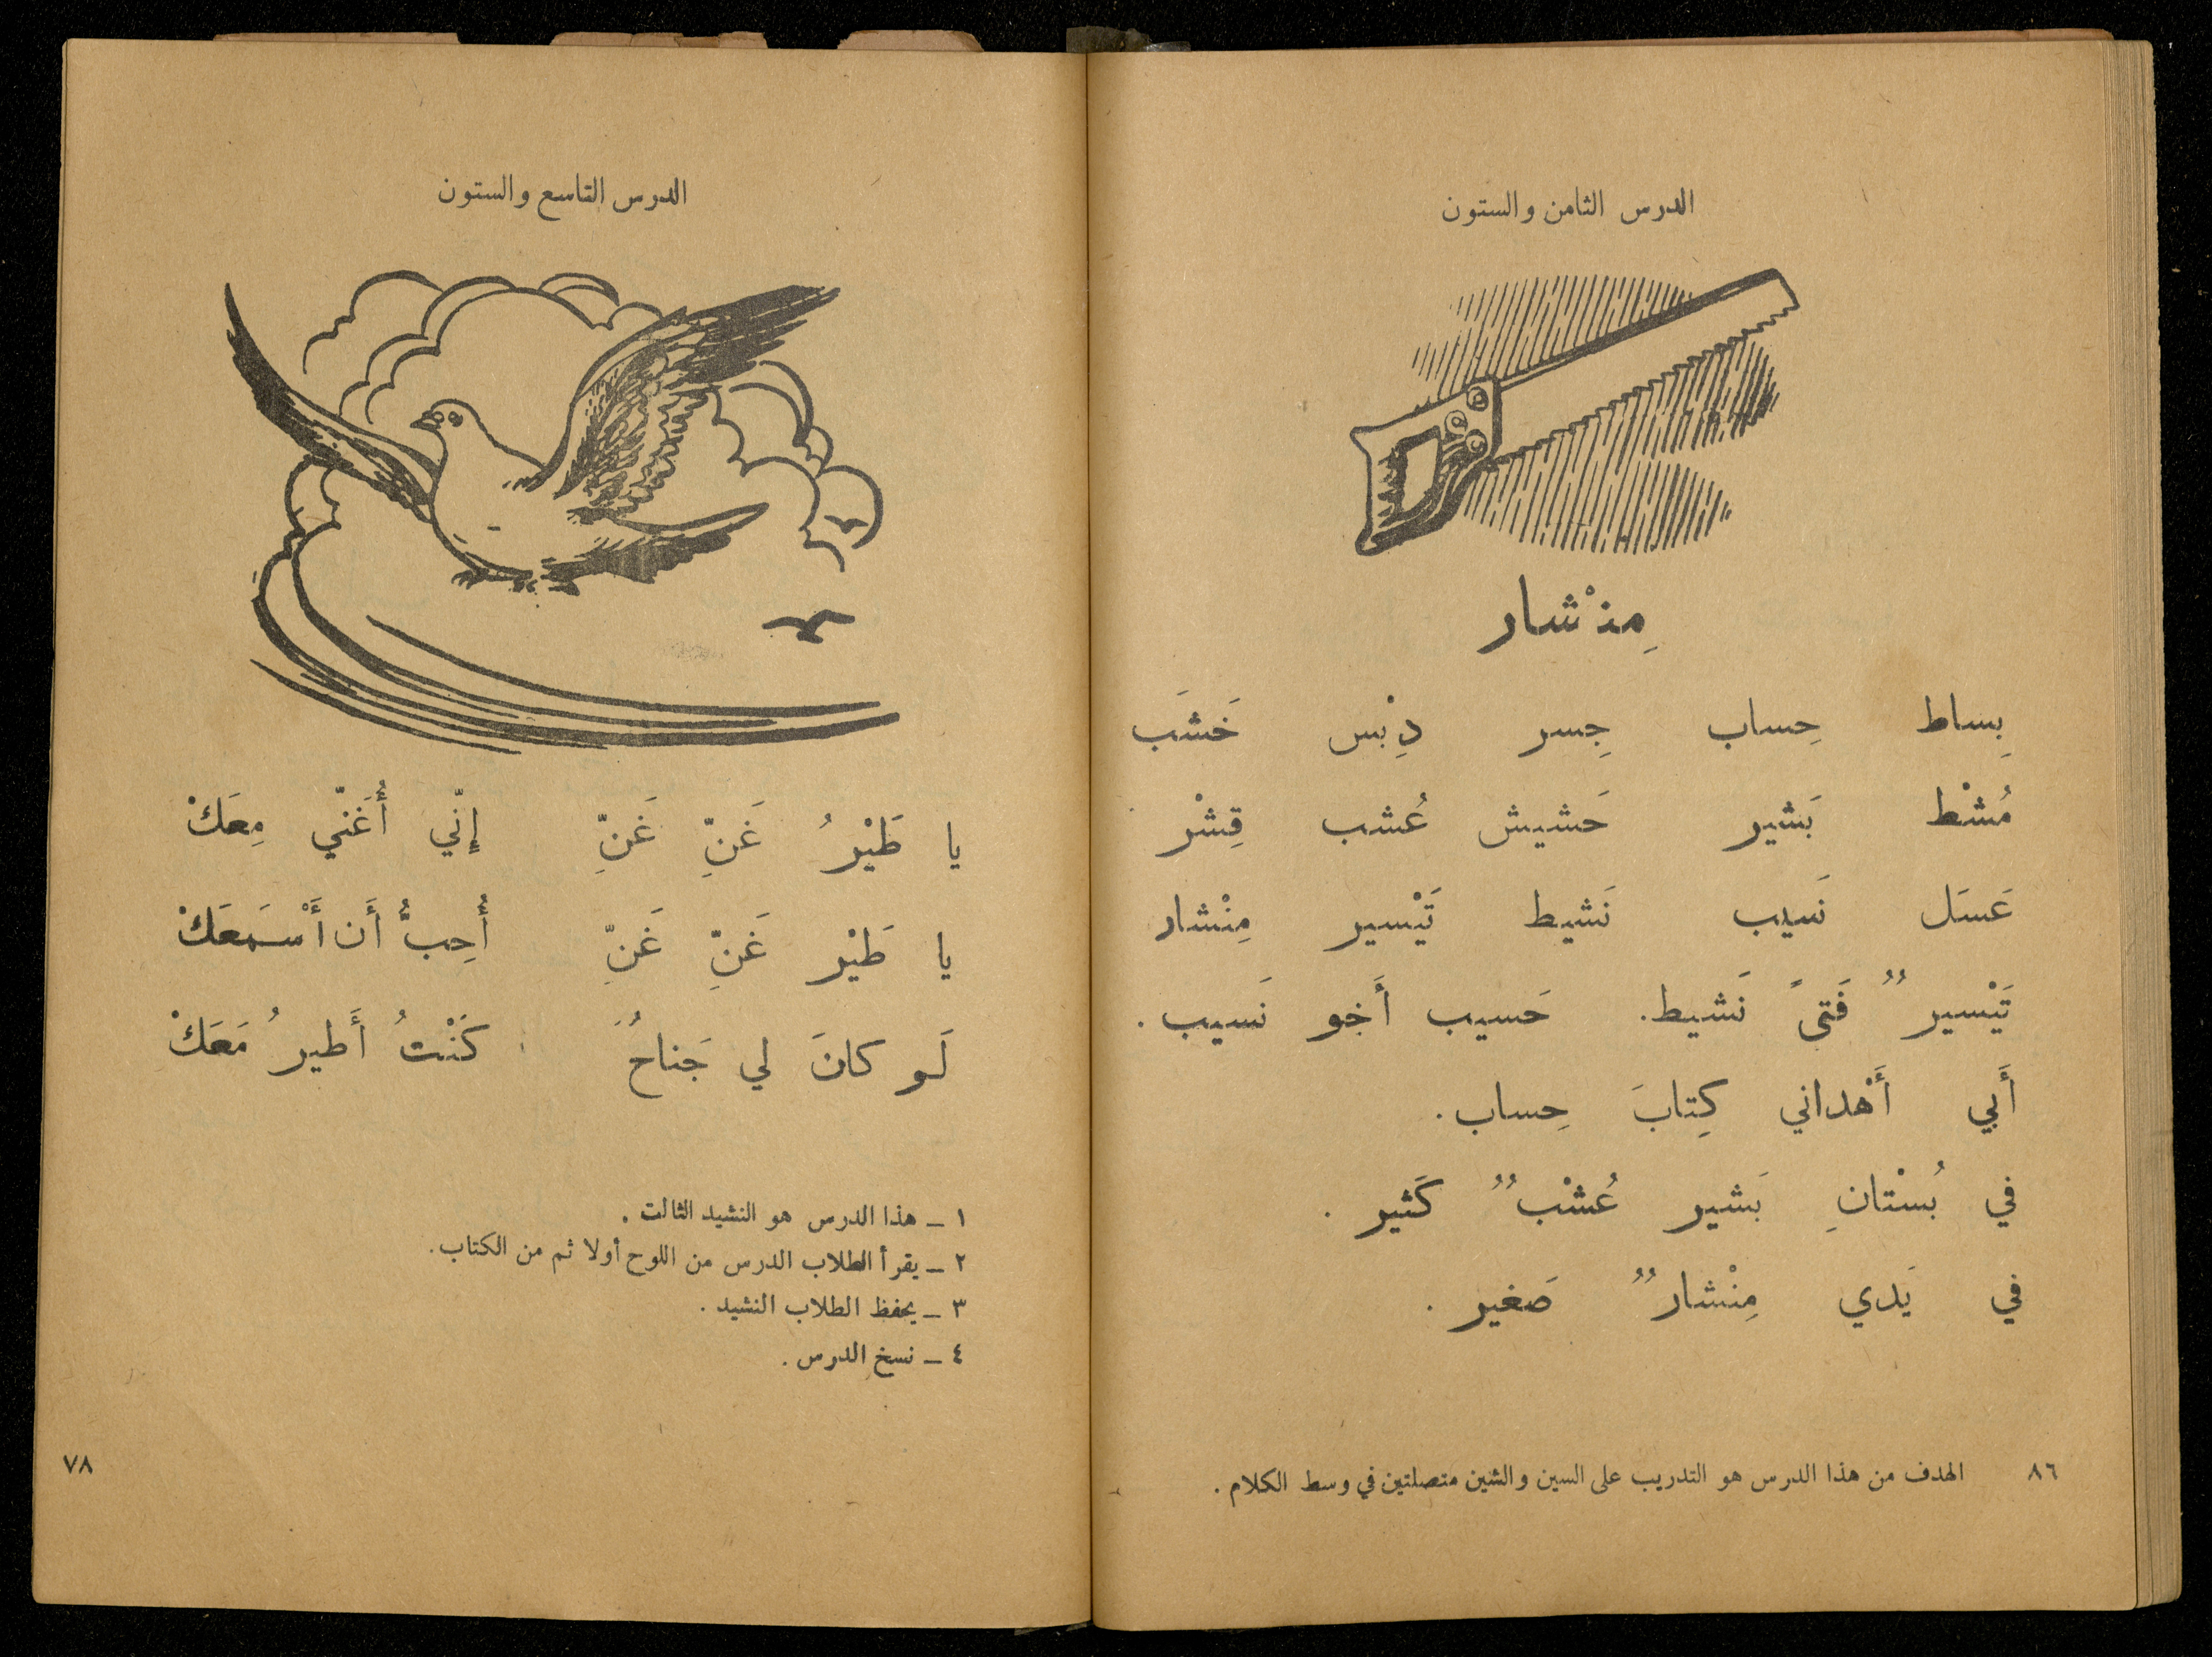 الدرس الثامن والستون
مِنْشار
بِساط حِساب جِسر دِبْس خَشَب
مُشْط بَشير حَشيش عُشب قِشْر
عَسَل نَسيب نَشيط تَيْسير مِنْشار
تَيْسيرٌ فَتىً نَشيط. حَسيب أَخو نَسيب.
أَبي أَهْداني كِتابَ حِساب.
في بُسْتانِ بَشير عُشْبٌ كَثير.
في يَدي مِنْشارٌ صَغير.
٨٦ الهدف من هذا الدرس هو التدريب على السين والشين متصلتين في وسط الكلام.
الدرس التاسع والستون
يا طَيْرُ غَنِّ غَنِّ إِنّي أُغَنّي مَعَكْ
يا طَيْر غَنِّ غَنِّ أُحِبُّ أَن أَسْمَعَكْ
لَو كانَ لي جَناحُ كُنْتُ أَطيرُ مَعَكْ
١ - هذا الدرس هو النشيد الثالث.
٢ - يقرأ الطلاب الدرس من اللوح أولا ثم من الكتاب.
٣ - يحفظ الطلاب النشيد.
٤ - نسخ الدرس.
٧٨